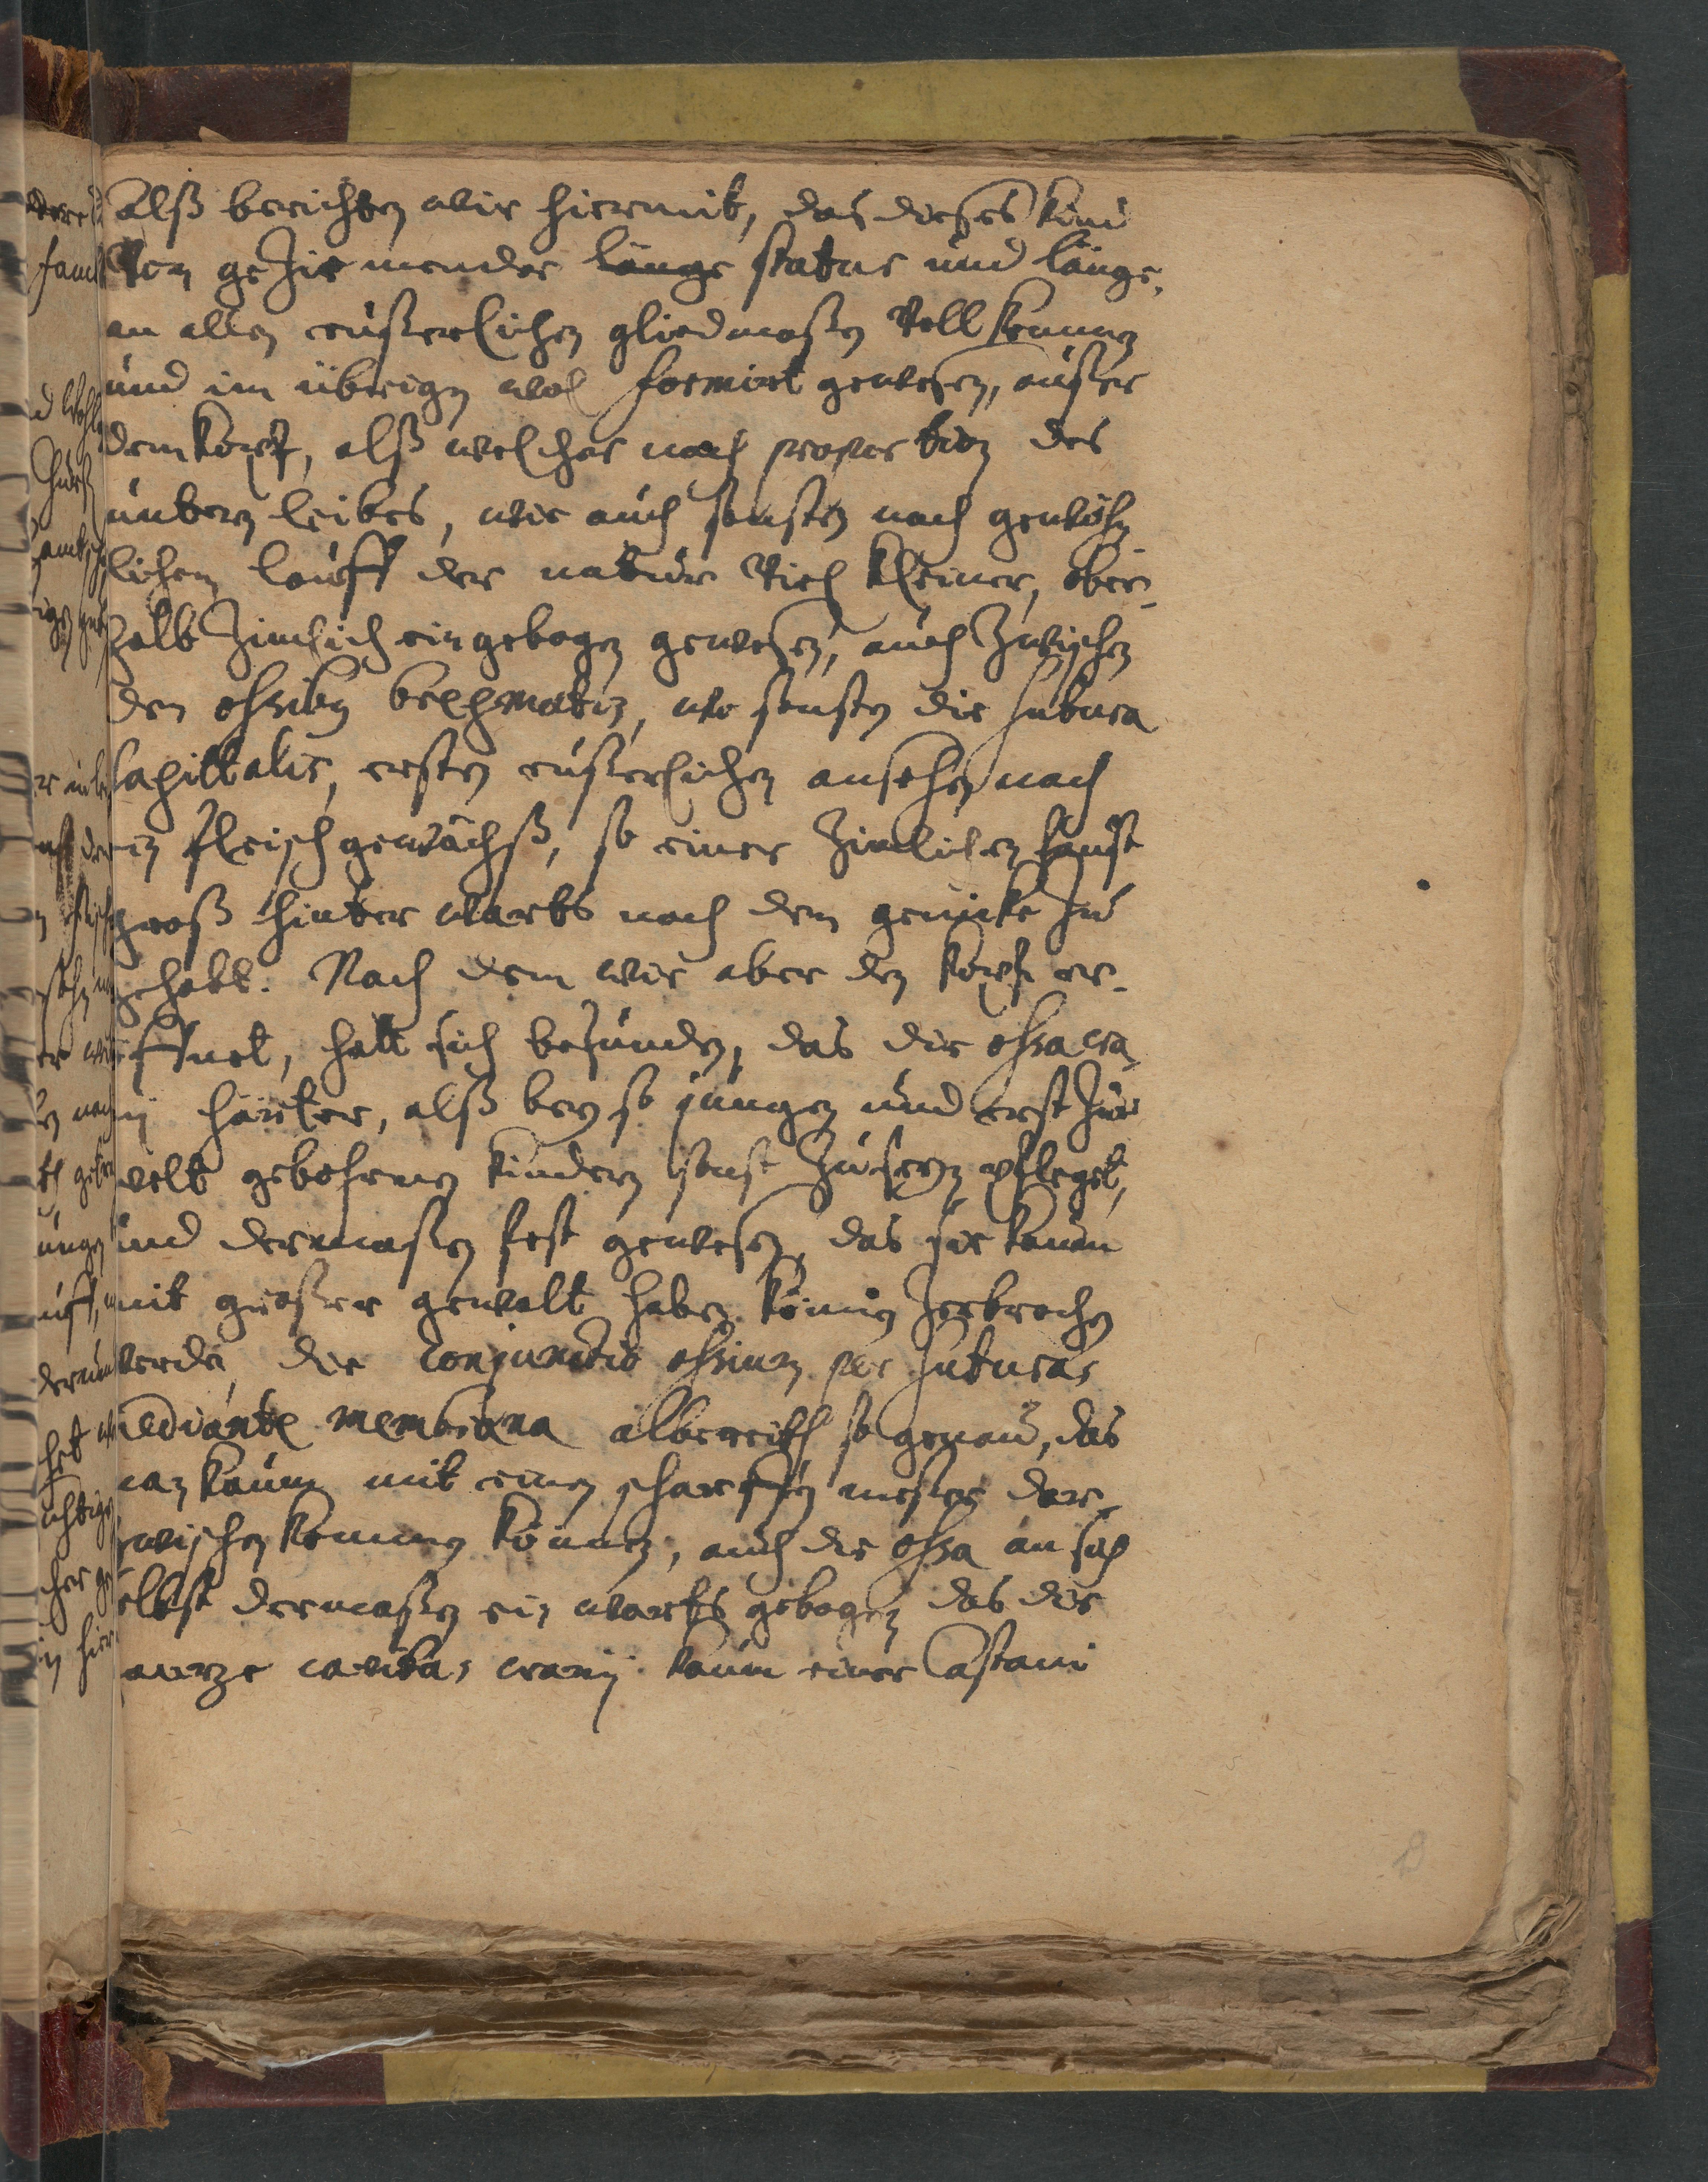 alß berichten wir hiermit, das dieses kind
Von geziemender länge statur und länge,
an allen eüßerlichen gliedmaßen Vollkommen
und im übrigen wol formirt gewesen, außer
dem kopf, alß welcher nach proportion des
untern leibes, wie auch sonsten nach gewöhn
lichem lauff der natur Viel kleiner, ober-
halb zimlich eingebogen gewesen, auch zwischen
den ossibus bregmatis, wo sonsten die sutura
sagittalis, ersten eüßerlichen ansehen nach
ein fleischgewächß, so einer zimlichen faust
groß hinterwarts nach dem genicke zu
gehabt. Nach dem wir aber den kopf er-
öffnet, hatt sich befunden, das die ossa cra-
nij härter, alß bey so jungen und erst zur
welt gebohrnen kindern sonst zu seyn pfleget,
und dermaßen fest gewesen, das sie kaum
mit großer gewalt haben können zerbrochen
werden, die conjunctio ossium per suturas
mediante membrana albereith so genau, das
man kaum mit einen scharffen messer dar-
zwischen kommen können, auch die ossa an sich
selbst dermaßen ein warts gebogen das die
gantze cavitas cranij kaum einer Castani